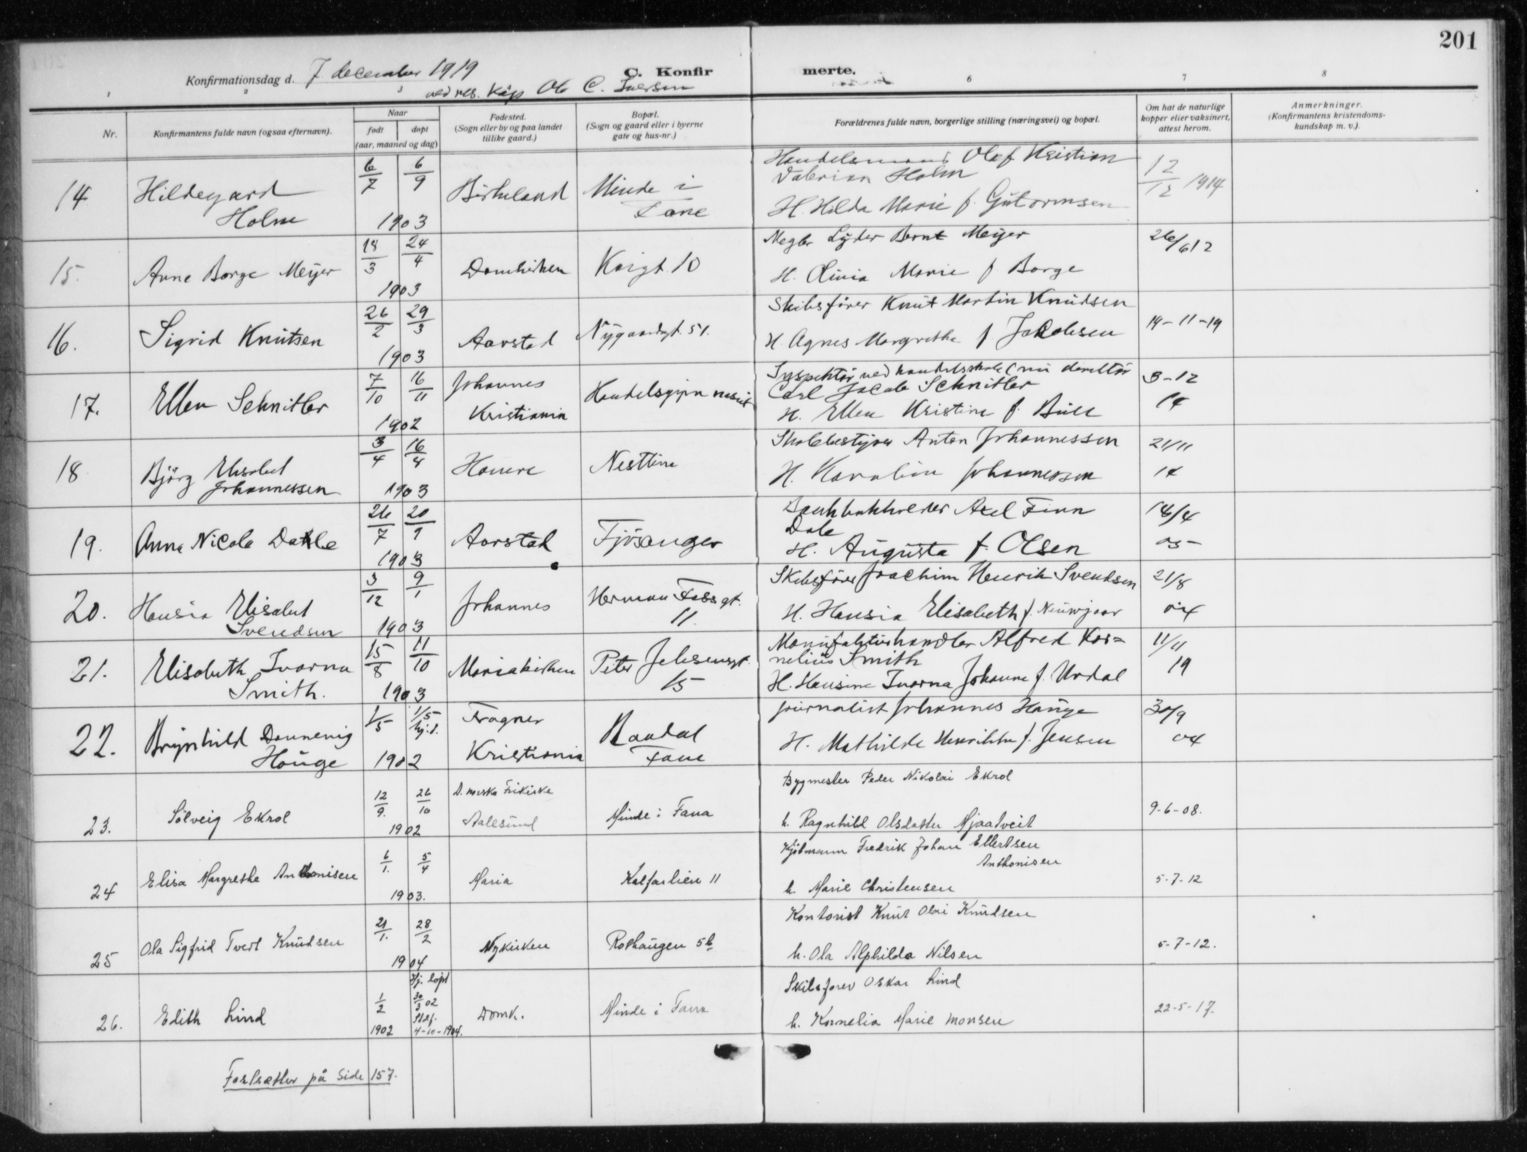 201
Konfirmationsdag d. 7 december 1919 C. Konfirmerte.
ved res. kap Ole C. Iversen
1 2 3 6 7 8
Nr. Konfirmantens fulde navn (ogsaa efternavn). Naar født døpt (aar, maaned og dag) Fødested. (Sogn eller by og paa landet tillike gaard.) Bopæl. (Sogn og gaard eller i byerne gate og hus-nr.) Forældrenes fulde navn, borgerlige stilling (næringsvei) og bopæl. Om hat de naturlige kopper eller vaksinert, attest herom. Anmerkninger. (Konfirmantens kristendoms-kundskap m. v.).
14 Hildegard Holm 6/7 6/9 1903 Birkeland Minde i Fane Handelsmand Olof Kristian Valerian Holm
H. Hilda Marie f. Guttormsen 12/12 1914
15. Anne Borge Meyer 18/3 24/4 1903 Domkirken Kong 10 Lyder Bernt Meyer
H. Olivia Marie f Borge 26/6 12
16. Sigrid Knutsen 26/2 29/3 1903 Aarstad Nygaardsgt. 51. Skibsfører Knut Martin Knudsen
H Agnes Margrethe f Jakobsen 14-11-19
17. Ellen Schnitler 7/10 16/11 1902 Johannes Kristiania Inspektør ved handelsskole (nu direktør
Carl Jacob Schnitler
H. Ellen Kristine f. Bull 3-12 14
18 Bjørg Elisabet Johannessen 3/4 16/4 1903 Nesttun Skolebestyrer Anton Johannessen
H. Karoline Johannessen 21/11 14
19. Anna Nicole Dahle 26/7 20/9 1903 Aarstad Fjøsanger Bankbokholder Axel Finn
Dale
H. Augusta f. Olsen 14/4 05
20. Hansia Elisabet Svendsen 3/12 9/1 1903 Johannes Herman Fossgt. 11. Skibsfører Joachim Henrik Svendsen
H. Hansia Elisabeth f. 21/8 04
21. Elisabeth Ivarna Smith. 15/8 11/10 1903 Mariakirken Peter Jebsensgt. 15 Manufakturhandler Alfred Kor=
nelius Smith
H. Hansine Ivarna Johanne f. Urdal 11/11 19
22. Brynhild Dannevig Hauge 1/5 1/5 hj.d. 1902 Fragner Kristiania Raadal Fane journalist Johannes Hauge
H. Mathilde Henrikke f. Jensen 30/9 04
23. Solveig Ekrol 12/9. 26/10 1902 D. norske Frikirke Aalesund Minde i Fana Bygmester Peder Nikolai Ekrol
h. Ragnhild Olsdatter Mjaatveit 9-6-08.
24 Elisa Margrethe Anthonisen 6/1. 5/4 1903. Maria Kalfarlien 11 Kjøbmann Fredrik Johan Ellertsen
Anthonisen
h. Marie Christensen 5-7-12
25 Ola Sigfrid Tvert Knudsen 21/1. 28/2 1904 Nykirken Rothaugen 5b Kontorist Knut Olai Knudsen
h. Ola Alphilda Nilsen 5-7-12.
26. Edith Lind 1/2 1902 Hj. døpt 30/3 02 Stadf. 4-10-1904. Domk. Minde i Fana Skibsfører Oskar Lind
h. Kornelia Marie Monsen 22-5-17.
Fortsætter på side 157.